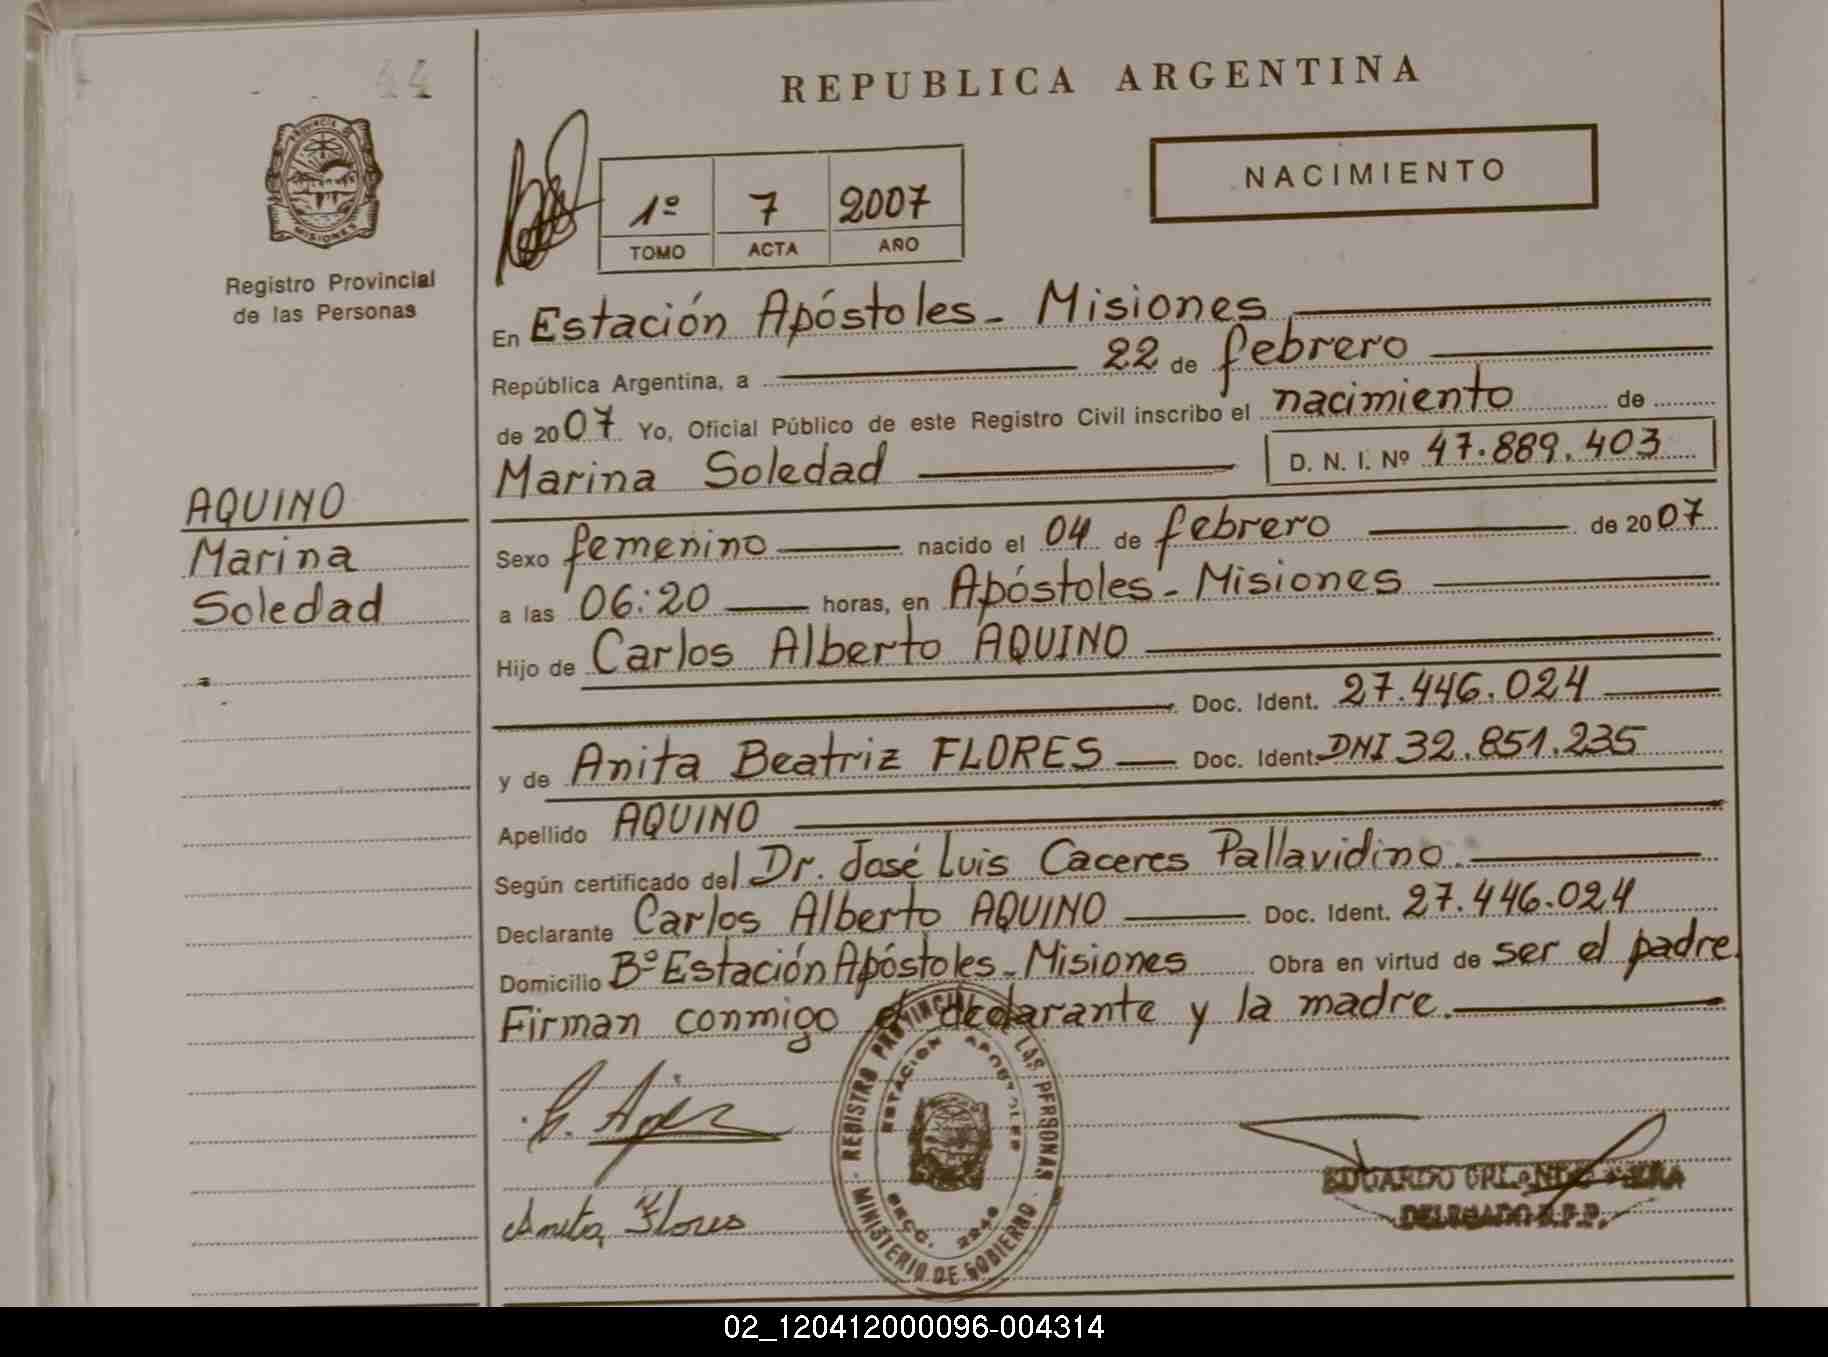 44
REPUBLICA ARGENTINA
NACIMIENTO
1º 7 2007
TOMO ACTA AÑO
PROVINCIA DE
MISIONES
Registro Provincial
de las Personas
AQUINO
Marina
Soledad
En Estación Apóstoles - Misiones
República Argentina, a 22 de febrero
de 2007 Yo, Oficial Público de este Registro Civil inscribo el nacimiento de
Marina Soledad D. N. I. Nº 47.889.403
Sexo femenino nacido el 04 de febrero de 2007
a las 06:20 horas, en Apóstoles - Misiones
Hijo de Carlos Alberto AQUINO
Doc. Ident. 27.446.024
y de Anita Beatriz FLORES Doc. Ident. DNI 32.851.235
Apellido AQUINO
Según certificado del Dr. José Luis Caceres Pallavidino.
Declarante Carlos Alberto AQUINO Doc. Ident. 27.446.024
Domicilio Bº Estación Apóstoles - Misiones Obra en virtud de ser el padre.
Firman conmigo el declarante y la madre.
REGISTRO PROVINCIAL LAS PERSONAS
ESTACION APOSTOLES
MINISTERIO DE GOBIERNO
Anita Flores
EDUARDO
DELEGADO R.P.P.
02_120412000096-004314